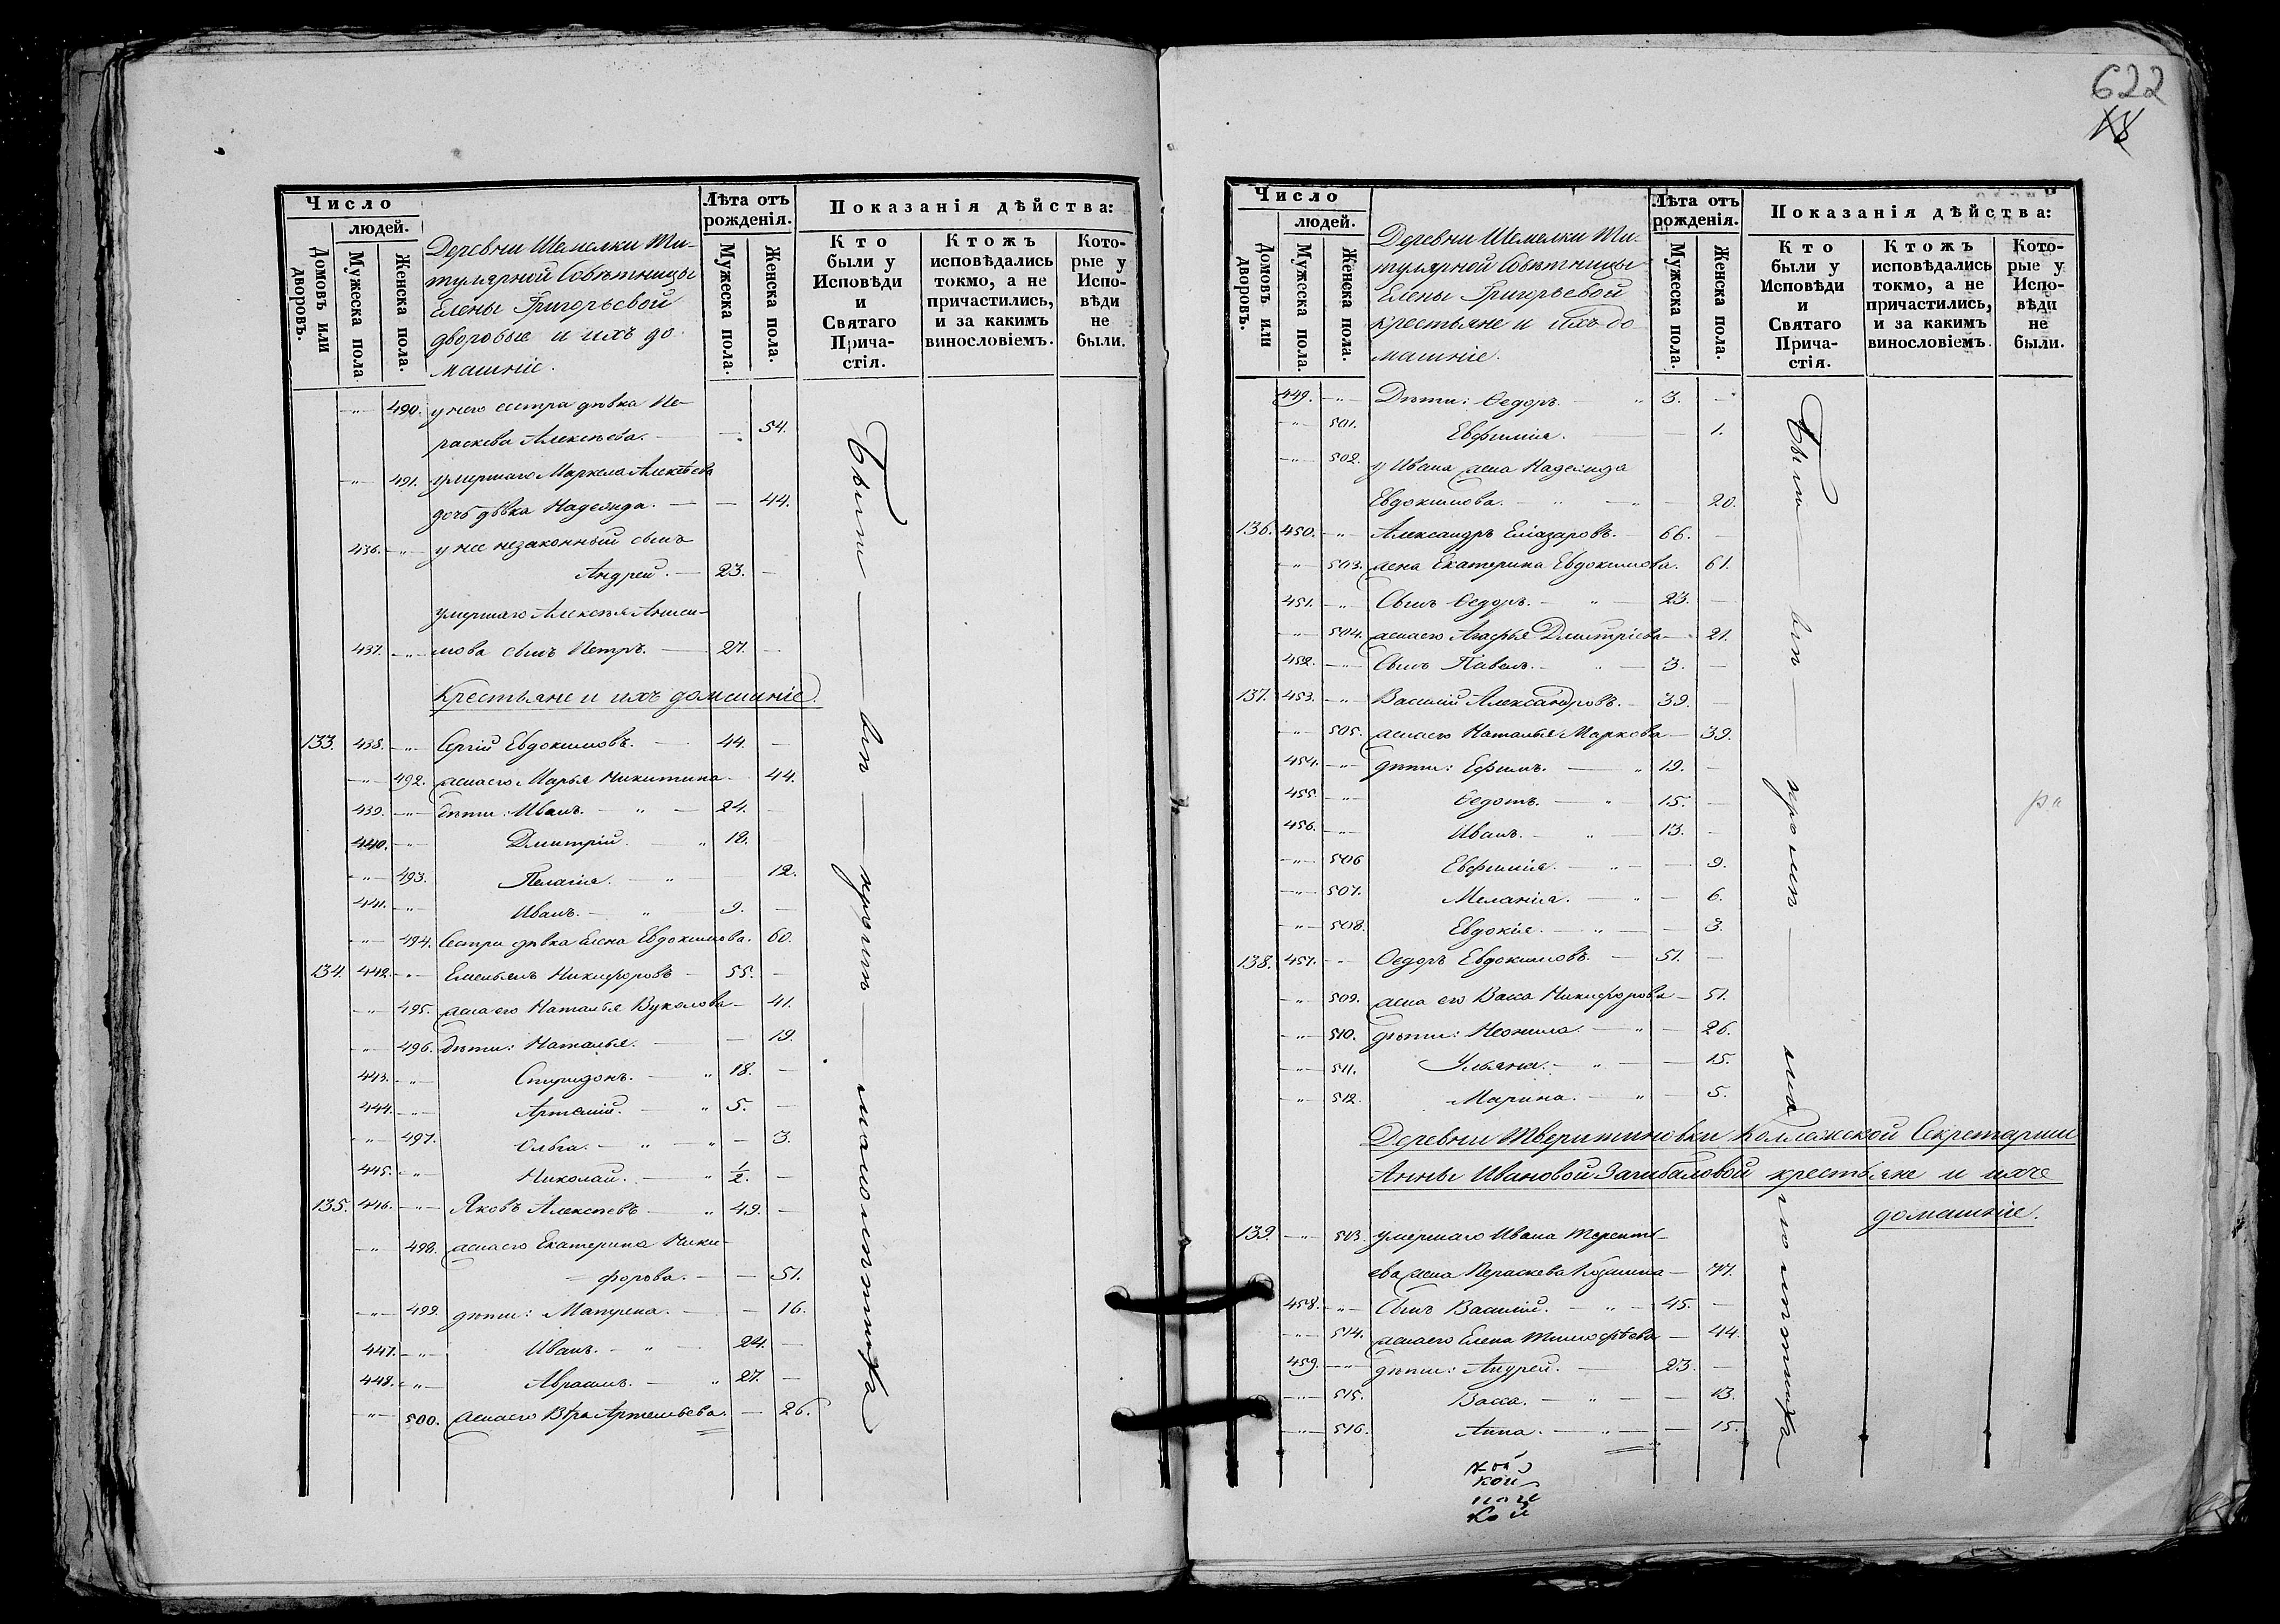 622
18
Число
людей.
Домовъ или дворовъ.
Мужеска пола
Женска пола.
Деревни Шемелки Ти-
тулярной Совѣтницы
Елены Григорьевой
дворовые и ихъ до-
машніе.
Лѣта отъ рожденія.
Мужеска пола.
Женска пола.
Показанія дѣйства:
Кто были у Исповѣди и Святаго Прича-стія.
Ктожъ исповѣдались токмо, а не причастились, и за какимъ винословіемъ.
Кото-рые у Испо-вѣди не были.
—"— 490. у него сестра дѣвка Пе-
раскева Алексѣева. — — 54.
—"— 491. умершаго Маркела Алексѣева
дочь дѣвка Надежда. — — 44.
436. —"— у нее незаконный сынъ
Андрей. — 23. —
умершаго Алексѣя Аниси-
437. —"— мова сынъ Петръ. — 27. —
Крестьяне и ихъ домашніе.
133. 438. —"— Сергій Евдокимовъ. — 44. —
—"— 492. жена его Марья Никитина — 44.
439. —"— дѣти: Иванъ. — " — 24. —
440. —"— Дмитрій. " 18. —
—"— 493. Пелагія. — " — — 12.
441. —"— Иванъ. — " — 9. —
—"— 494. Сестра дѣвка Елена Евдокимова. 60.
134. 442. —"— Емельянъ Никифоровъ — 55. —
—"— 495. жена его Наталья Вуколова — 41.
—"— 496. дѣти: Наталья. — — 19.
443. —"— Спиридонъ. — " 18. —
444. —"— Артемій. — " 5. —
—"— 497. Ольга. — " — " — 3.
445. —"— Николай. — " 1/2. —
135. 446. —"— Яковъ Алексѣевъ — " 49. —
—"— 498. жена его Екатерина Ники-
форова. — — 51.
—"— 499. дѣти: Матрена. — — 16.
447. —"— Иванъ. — " — 24. —
448. —"— Авраамъ. — " 27. —
—"— 500. жена его Вѣра Артемьева. — 26.
Были — вси — кромѣ — малолѣтнихъ
Число
людей.
Домовъ или дворовъ.
Мужеска пола.
Женска пола.
Деревни Шемелки Ти-
тулярной Совѣтницы
Елены Григорьевой
крестьяне и ихъ до
машніе.
Лѣта отъ рожденія.
Мужеска пола.
Женска пола.
Показанія дѣйства:
Кто были у Исповѣди и Святаго Прича-стія.
Ктожъ исповѣдались токмо, а не причастились, и за какимъ винословіемъ.
Кото-рые у Испо-вѣди не были.
449. —"— Дѣти: Ѳедоръ. — " 3. —
—"— 501. Евфимія. — — 1.
—"— 502. у Ивана жена Надежда
Евдокимова. — " — " — 20.
136. 450. —"— Александръ Еліазаровъ. — 66. —
—"— 503. жена Екатерина Евдокимова. 61.
451. —"— Сынъ Ѳедоръ. — " — 23. —
—"— 504. жена его Агафья Дмитріева — 21.
452. —"— Сынъ Павелъ. — " — 3. —
137. 453. —"— Василій Александровъ. — 39. —
—"— 505. жена его Наталья Маркова — 39.
454. —"— дѣти: Ефимъ. — " 19. —
455. —"— Ѳедотъ. — " — 15. —
456. —"— Иванъ. — " — 13. —
—"— 506 Евфимія. — " — — 9.
—"— 507. Меланія. — " — 6.
—"— 508. Евдокія. — " — — 3.
138. 457. —"— Ѳедоръ Евдокимовъ. — 51. —
—"— 509. жена его Васса Никифорова — 51.
—"— 510. дѣти: Неонила. — " — 26.
—"— 511. Ульяна. — " — — 15.
—"— 512. Марина. — " — 5.
Деревни Тверитиновки Коллежской Секретарши
Анны Ивановой Загибаловой крестьяне и ихъ
домашніе.
139. —"— 513. умершаго Ивана Теренть-
ева жена Пераскева Козьмина — 77.
458. —"— Сынъ Василій. — " — 45. —
—"— 514. жена его Елена Тимофѣева — 44.
459. —"— дѣти: Андрей. — 23. —
—"— 515. Васса. — " — — 13.
—"— 516. Анна. — " — — 15.
Были — вси — кромѣ — малолѣтнихъ
ра